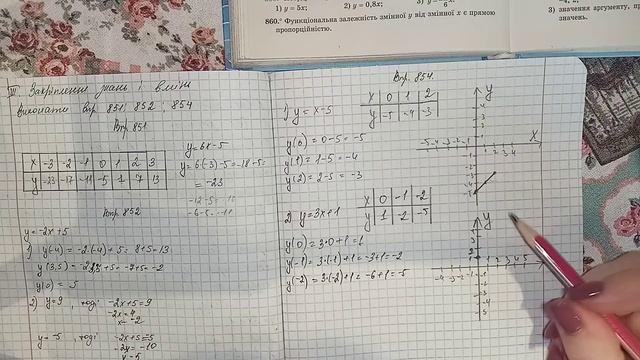 1) y = 5x;
2) y = 0,8x;
860.° Функціональна залежність змінної y від змінної x є прямою
пропорційністю.
3) значення аргументу, пр
значень.
III Закріплення знань і вмінь
Виконати Впр 851; 852; 854
Впр 851
X -3 -2 -1 0 1 2 3
y -23 -17 -11 -5 1 7 13
y=6x-5
y=6·(-3)-5=-18-5=
= -23
-12-5=
-6-5=-11
Впр 852
y=-2x+5
1) y(-4) = -2·(-4)+5 = 8+5=13
y(3,5) = -2·3,5+5=-7+5=-2
y(0) = 5
2) y=9, тоді -2x+5=9
-2x=4
x=-2
y=-5, тоді -2x+5=-5
-2x=-10
x=5
Впр. 854.
1) y = x-5
X 0 1 2
y -5 -4 -3
y(0) = 0-5 = -5
y(1) = 1-5 = -4
y(2) = 2-5 = -3
2) y=3x+1
X 0 -1 -2
y 1 -2 -5
y(0) = 3·0+1=1
y(-1) = 3·(-1)+1=-3+1=-2
y(-2) = 3·(-2)+1=-6+1=-5
y
X
-5 -4 -3 -2 -1
1 2 3 4
y
-4 -3 -2 -1
1 2 3 4 5